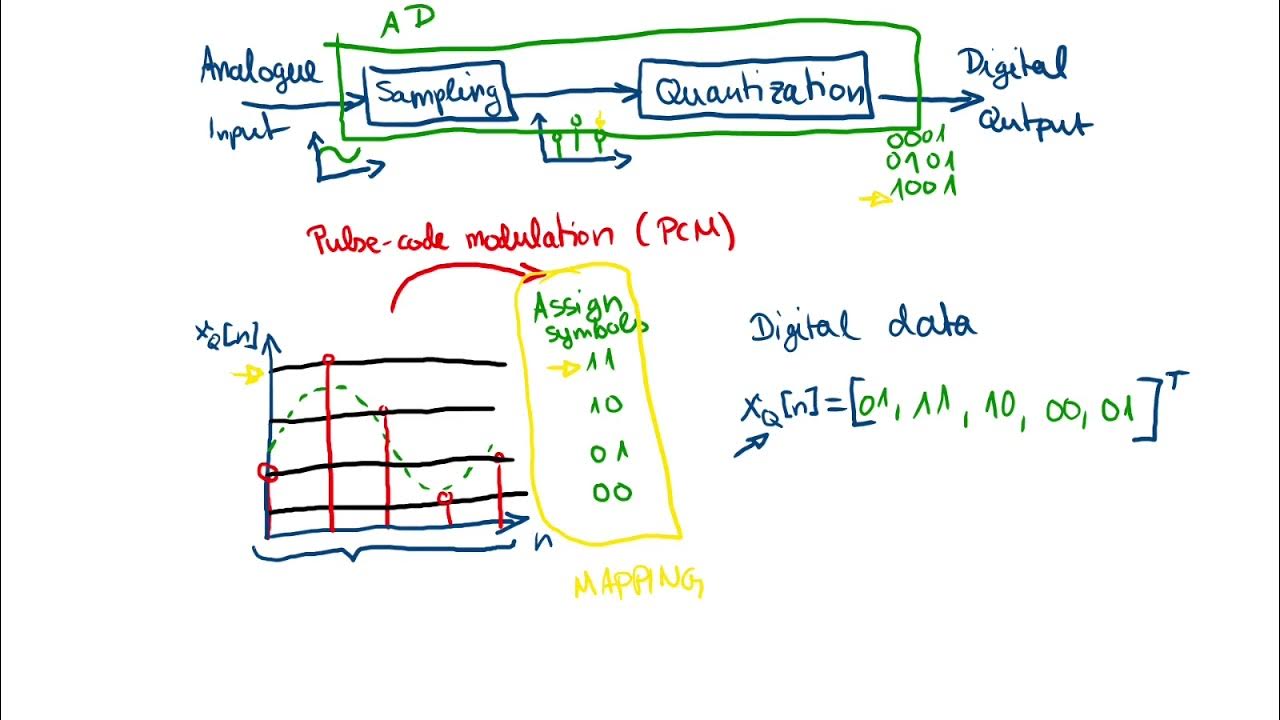 AD
Analogue
Input
Sampling
Quantization
Digital
Output
0001
0101
1001
Pulse-code modulation (PCM)
Assign
symbols
11
10
01
00
MAPPING
xQ[n]
n
Digital data
xQ[n]=[01, 11, 10, 00, 01]T